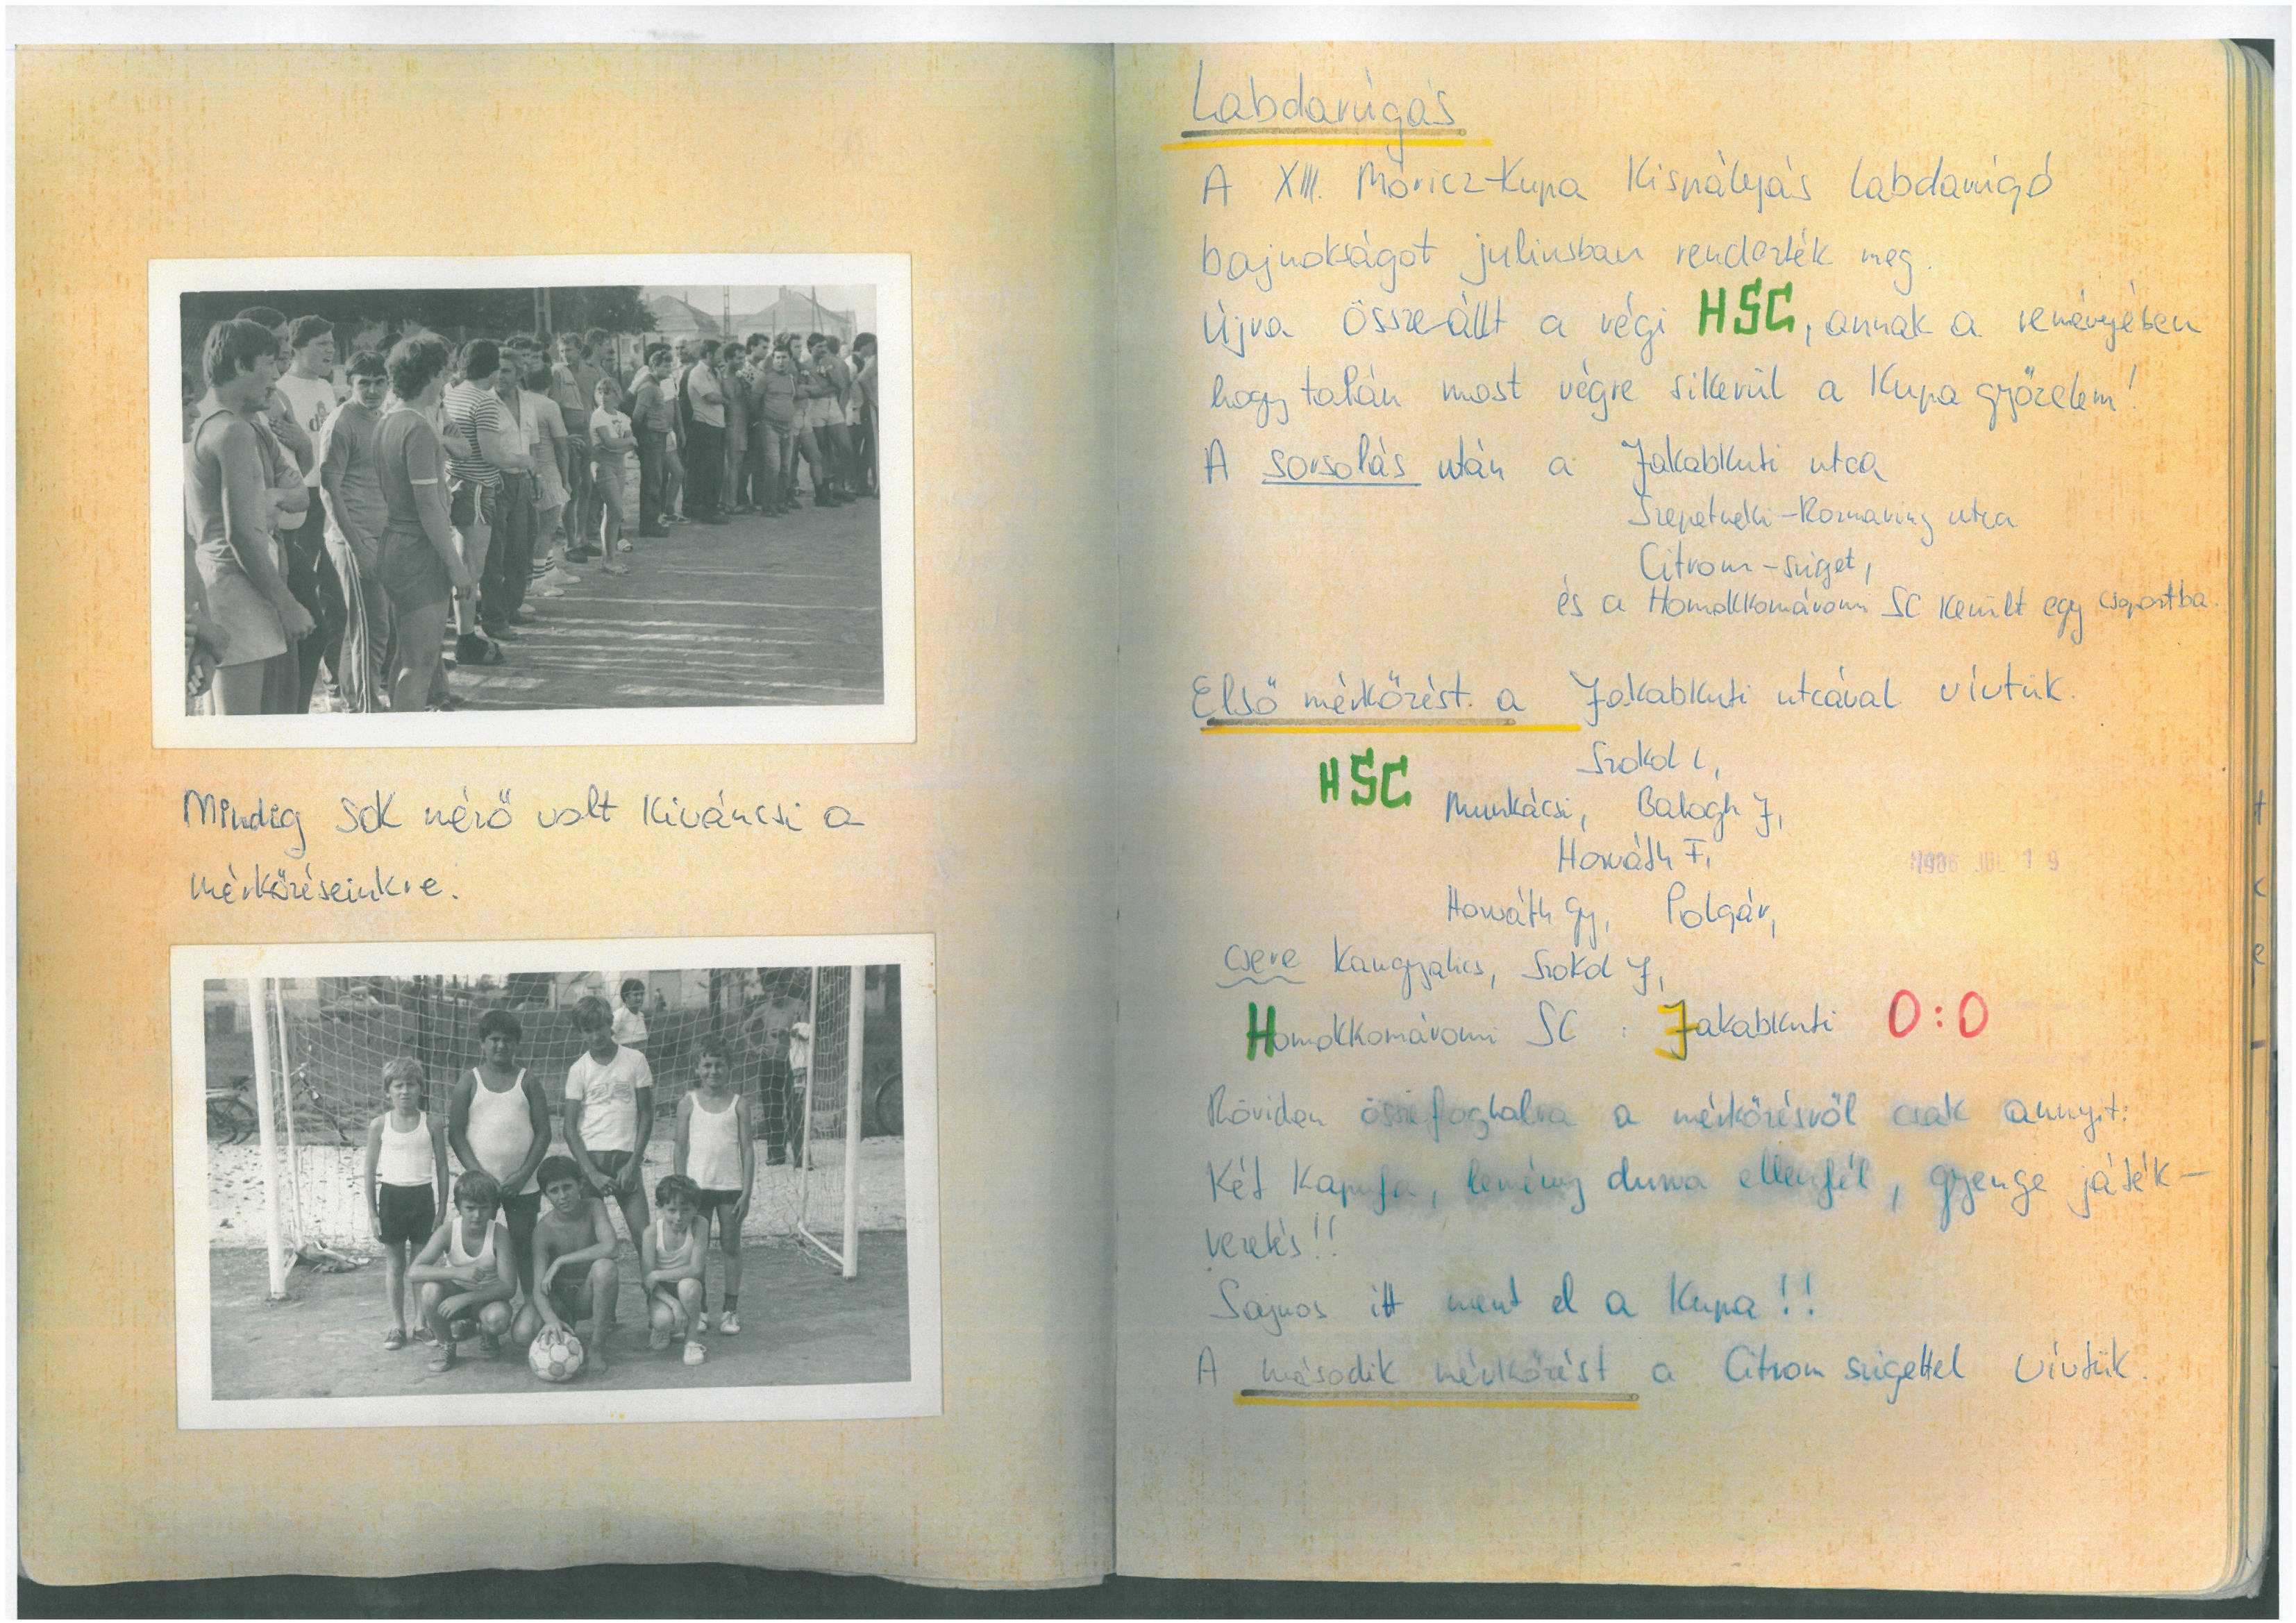 Mindig sok néző volt kiváncsi a
mérkőzéseinkre.
Labdarúgás
A XIII. Móricz-Kupa Kispályás labdarúgó
bajnokságot juliusban rendezték meg.
Újra összeállt a régi HSC, annak a reményében
hogy talán most végre sikerül a Kupa győzelem!
A sorsolás után a Jakabkuti utca
Szepetneki-Rozmaring utca
Citrom-sziget,
és a Homokkomáromi SC került egy csoportba.
Első mérkőzést a Jakabkuti utcával vívtuk.
HSC
Szokol L,
Munkácsi, Balogh J,
Horváth F,
1986 JUL 19
Horváth Gy, Polgár,
csere Kangyalics, Szokol J,
Homokkomáromi SC : Jakabkuti 0:0
Röviden összefoglalva a mérkőzésről csak annyit:
Két kapufa, kemény durva ellenfél, gyenge játék-
vezetés!!
Sajnos itt ment el a Kupa!!
A második mérkőzést a Citrom szigettel vívtuk.